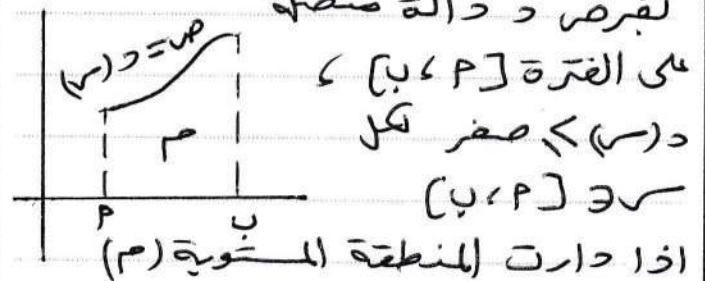 لفرض د دالة متصلة
على الفترة [م ، ب] ،
د(س) ≥ صفر لكل
س ∈ [م ، ب]
اذا دارت المنطقة المستوية (م)
ص = د(س)
م
م
ب